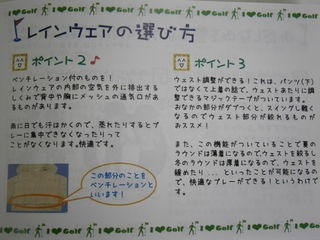 I ❤ Golf I ❤ Golf I ❤ Golf I ❤ Golf I ❤ Golf
レインウェアの選び方
ポイント2♪
ベンチレーション付のものを!
レインウェアの内部の空気を外に排出する
しくみで背中や胸にメッシュの通気口があ
るものがあります。
雨に日でも汗はかくので、蒸れたりするとプ
レーに集中できなくなったりって
ことがなくなります。快適です。
この部分のことを
ベンチレーションと
いいます!
ポイント3
ウェスト調整ができる!これは、パンツ(下)
ではなくて上着の話で、ウェストあたりに調
整できるマジックテープがついています。
おなかの部分がダブつくと、スイングし難く
なるのでウェスト部分が絞れるものが
おススメ!
また、この機能がついていることで夏の
ラウンドは薄着になるので、ウェストを絞るし
冬のラウンドは厚着になるので、ウェストを
緩めたり...といったことが可能になるの
で、快適なプレーができる!というわけで
す。
I ❤ Golf I ❤ Golf I ❤ Golf I ❤ Golf I ❤ Golf